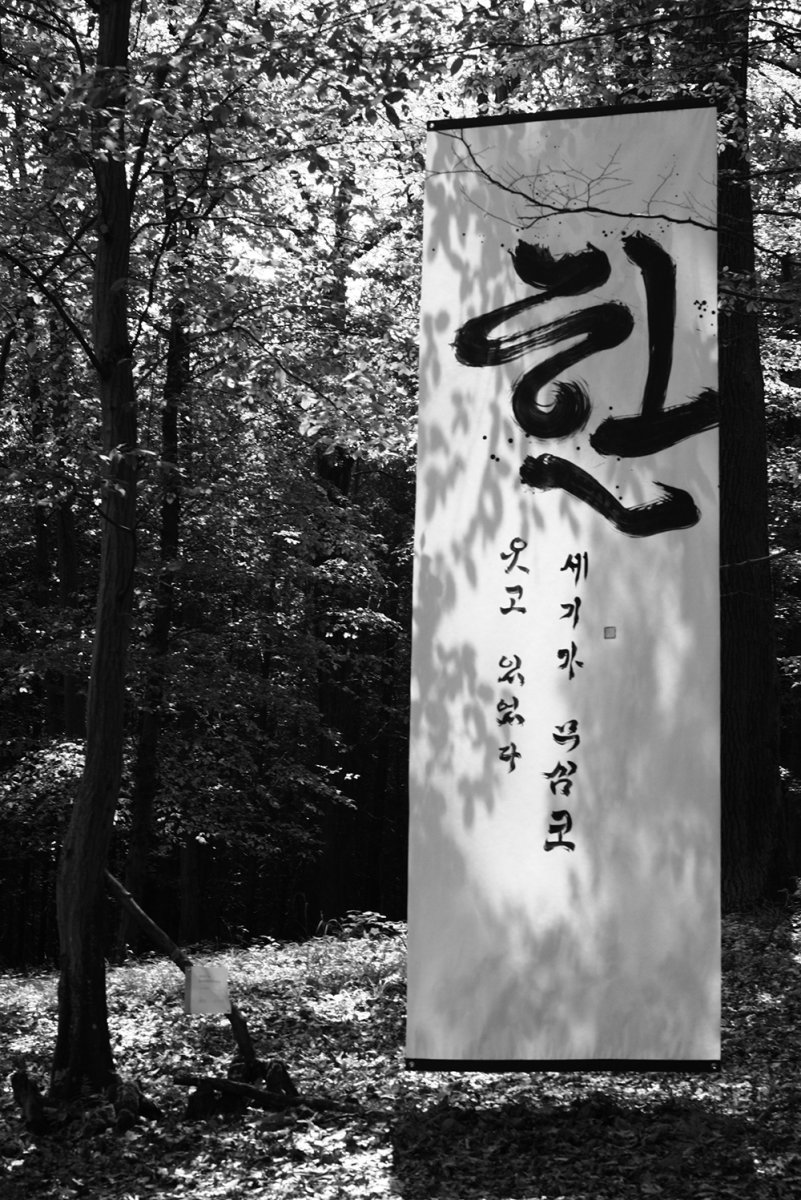 한
세기가 무심코
웃고 있었다